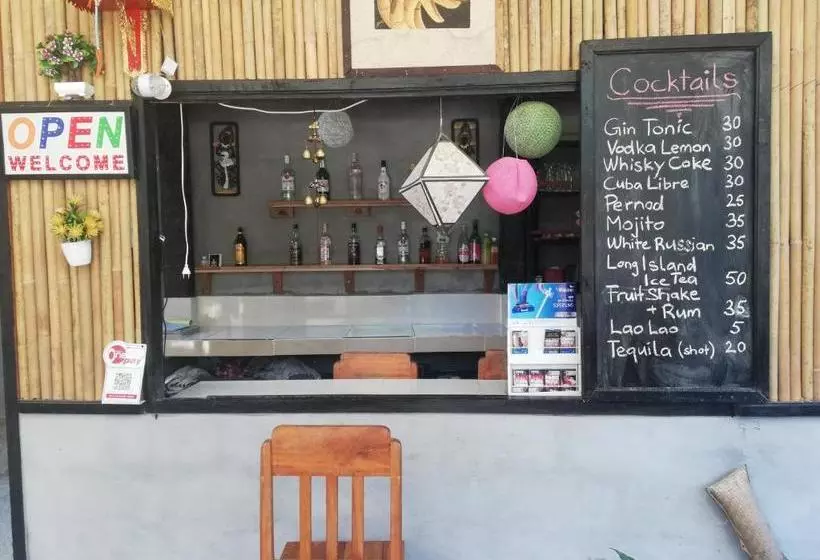 OPEN
WELCOME
One
pay
Cocktails
Gin Tonic 30
Vodka Lemon 30
Whisky Coke 30
Cuba Libre 30
Pernod 25
Mojito 35
White Russian 35
Long Island
Ice Tea 50
Fruit Shake
+ Rum 35
Lao Lao 5
Tequila (shot) 20